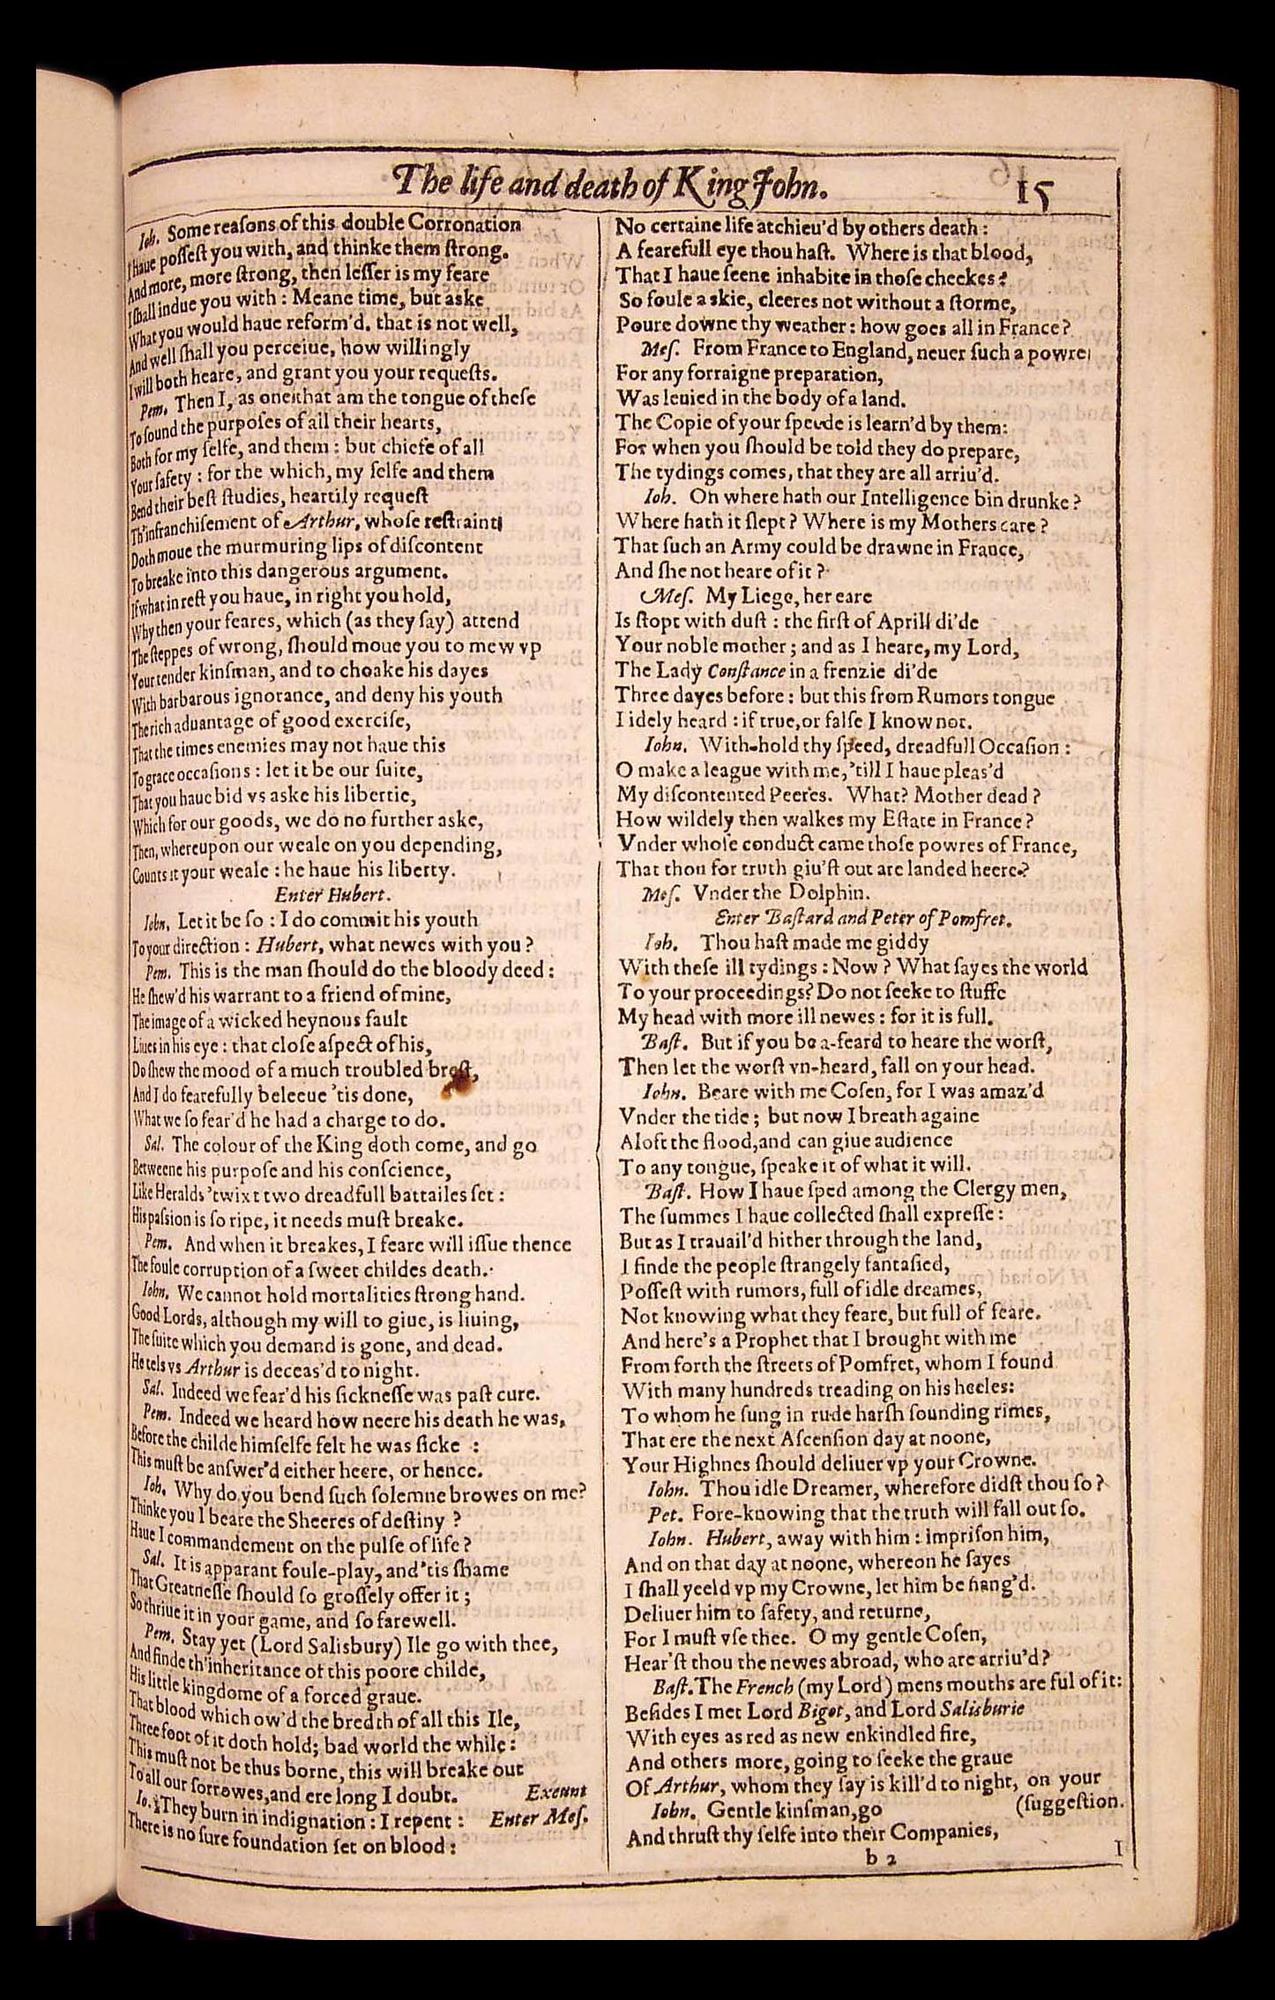 The life and death of King John. 15
Ioh. Some reasons of this double Corronation
I haue possest you with, and thinke them strong.
And more, more strong, then lesser is my feare
I shall indue you with : Meane time, but aske
What you would haue reform'd. that is not well,
And well shall you perceiue, how willingly
I will both heare, and grant you your requests.
Pem. Then I, as one that am the tongue of these
To sound the purposes of all their hearts,
Both for my selfe, and them : but chiefe of all
Your safety : for the which, my selfe and them
Bend their best studies, heartily request
Th'infranchisement of Arthur, whose restraint
Doth moue the murmuring lips of discontent
To breake into this dangerous argument.
If what in rest you haue, in right you hold,
Why then your feares, which (as they say) attend
The steppes of wrong, should moue you to mew vp
Your tender kinsman, and to choake his dayes
With barbarous ignorance, and deny his youth
The rich aduantage of good exercise,
That the times enemies may not haue this
To grace occasions : let it be our suite,
That you haue bid vs aske his libertie,
Which for our goods, we do no further aske,
Then, whereupon our weale on you depending,
Counts it your weale : he haue his liberty.
Enter Hubert.
Iohn. Let it be so : I do commit his youth
To your direction : Hubert, what newes with you ?
Pem. This is the man should do the bloody deed :
He shew'd his warrant to a friend of mine,
The image of a wicked heynous fault
Liues in his eye : that close aspect of his,
Do shew the mood of a much troubled brest,
And I do fearefully beleeue 'tis done,
What we so fear'd he had a charge to do.
Sal. The colour of the King doth come, and go
Betweene his purpose and his conscience,
Like Heralds 'twixt two dreadfull battailes set :
His passion is so ripe, it needs must breake.
Pem. And when it breakes, I feare will issue thence
The foule corruption of a sweet childes death.
Iohn. We cannot hold mortalities strong hand.
Good Lords, although my will to giue, is liuing,
The suite which you demand is gone, and dead.
He tels vs Arthur is deceas'd to night.
Sal. Indeed we fear'd his sicknesse was past cure.
Pem. Indeed we heard how neere his death he was,
Before the childe himselfe felt he was sicke :
This must be answer'd either heere, or hence.
Ioh. Why do you bend such solemne browes on me?
Thinke you I beare the Sheeres of destiny ?
Haue I commandement on the pulse of life ?
Sal. It is apparant foule-play, and 'tis shame
That Greatnesse should so grossely offer it ;
So thriue it in your game, and so farewell.
Pem. Stay yet (Lord Salisbury) Ile go with thee,
And finde th'inheritance of this poore childe,
His little kingdome of a forced graue.
That blood which ow'd the bredth of all this Ile,
Three foot of it doth hold; bad world the while :
This must not be thus borne, this will breake out
To all our sorrowes, and ere long I doubt. Exeunt
Io. They burn in indignation : I repent : Enter Mes.
There is no sure foundation set on blood :
No certaine life atchieu'd by others death :
A fearefull eye thou hast. Where is that blood,
That I haue seene inhabite in those cheekes ?
So foule a skie, cleeres not without a storme,
Poure downe thy weather : how goes all in France ?
Mes. From France to England, neuer such a powre
For any forraigne preparation,
Was leuied in the body of a land.
The Copie of your speede is learn'd by them:
For when you should be told they do prepare,
The tydings comes, that they are all arriu'd.
Ioh. Oh where hath our Intelligence bin drunke ?
Where hath it slept ? Where is my Mothers care ?
That such an Army could be drawne in France,
And she not heare of it ?
Mes. My Liege, her eare
Is stopt with dust : the first of Aprill di'de
Your noble mother ; and as I heare, my Lord,
The Lady Constance in a frenzie di'de
Three dayes before : but this from Rumors tongue
I idely heard : if true, or false I know not.
Iohn. With-hold thy speed, dreadfull Occasion :
O make a league with me, 'till I haue pleas'd
My discontented Peeres. What? Mother dead ?
How wildely then walkes my Estate in France ?
Vnder whose conduct came those powres of France,
That thou for truth giu'st out are landed heere?
Mes. Vnder the Dolphin.
Enter Bastard and Peter of Pomfret.
Ioh. Thou hast made me giddy
With these ill tydings : Now ? What sayes the world
To your proceedings? Do not seeke to stuffe
My head with more ill newes : for it is full.
Bast. But if you be a-feard to heare the worst,
Then let the worst vn-heard, fall on your head.
Iohn. Beare with me Cosen, for I was amaz'd
Vnder the tide ; but now I breath againe
Aloft the flood, and can giue audience
To any tongue, speake it of what it will.
Bast. How I haue sped among the Clergy men,
The summes I haue collected shall expresse :
But as I trauail'd hither through the land,
I finde the people strangely fantasied,
Possest with rumors, full of idle dreames,
Not knowing what they feare, but full of feare.
And here's a Prophet that I brought with me
From forth the streets of Pomfret, whom I found
With many hundreds treading on his heeles:
To whom he sung in rude harsh sounding rimes,
That ere the next Ascension day at noone,
Your Highnes should deliuer vp your Crowne.
Iohn. Thou idle Dreamer, wherefore didst thou so ?
Pet. Fore-knowing that the truth will fall out so.
Iohn. Hubert, away with him : imprison him,
And on that day at noone, whereon he sayes
I shall yeeld vp my Crowne, let him be hang'd.
Deliuer him to safety, and returne,
For I must vse thee. O my gentle Cosen,
Hear'st thou the newes abroad, who are arriu'd ?
Bast. The French (my Lord) mens mouths are ful of it:
Besides I met Lord Bigot, and Lord Salisburie
With eyes as red as new enkindled fire,
And others more, going to seeke the graue
Of Arthur, whom they say is kill'd to night, on your
Iohn. Gentle kinsman, go (suggestion.
And thrust thy selfe into their Companies,
b 2 I